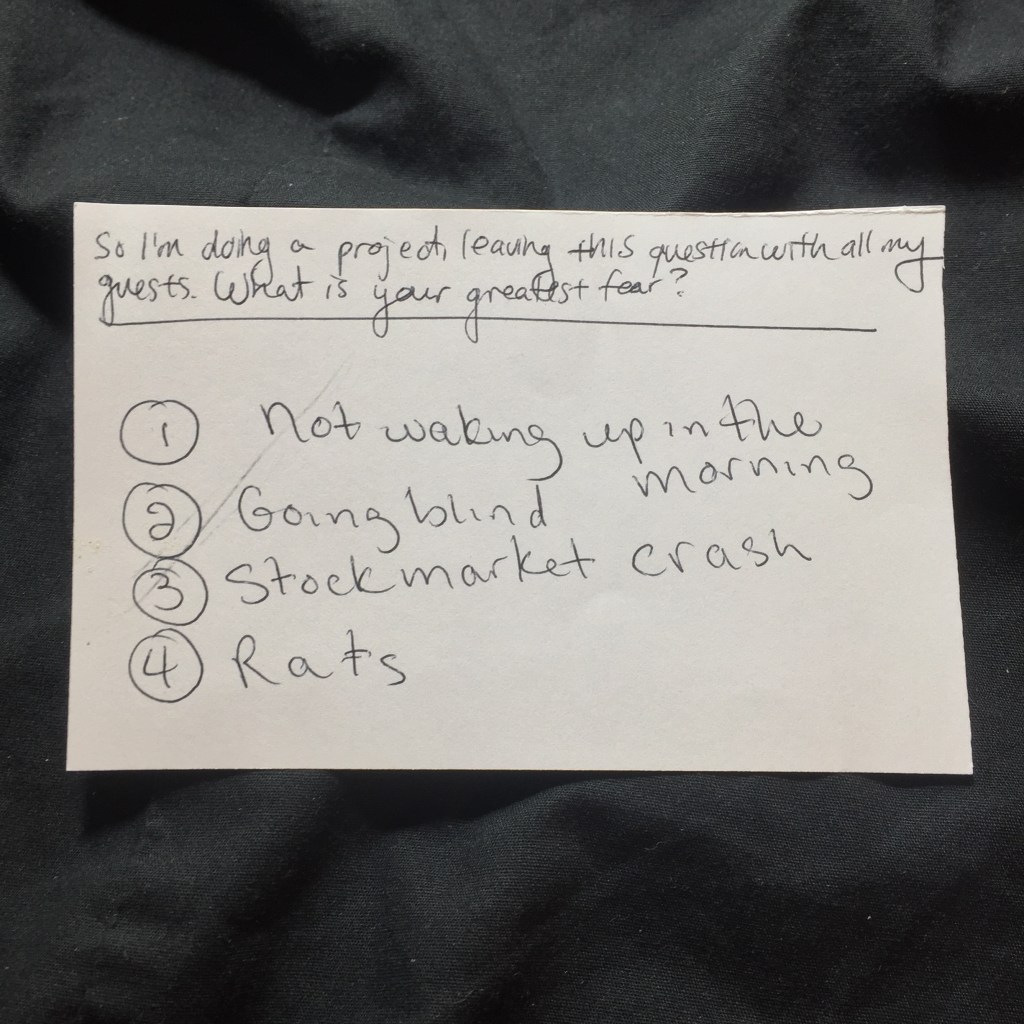 So I'm doing a project, leaving this question with all my
guests. What is your greatest fear?
1 Not waking up in the
morning
2 Going blind
3 Stockmarket crash
4 Rats